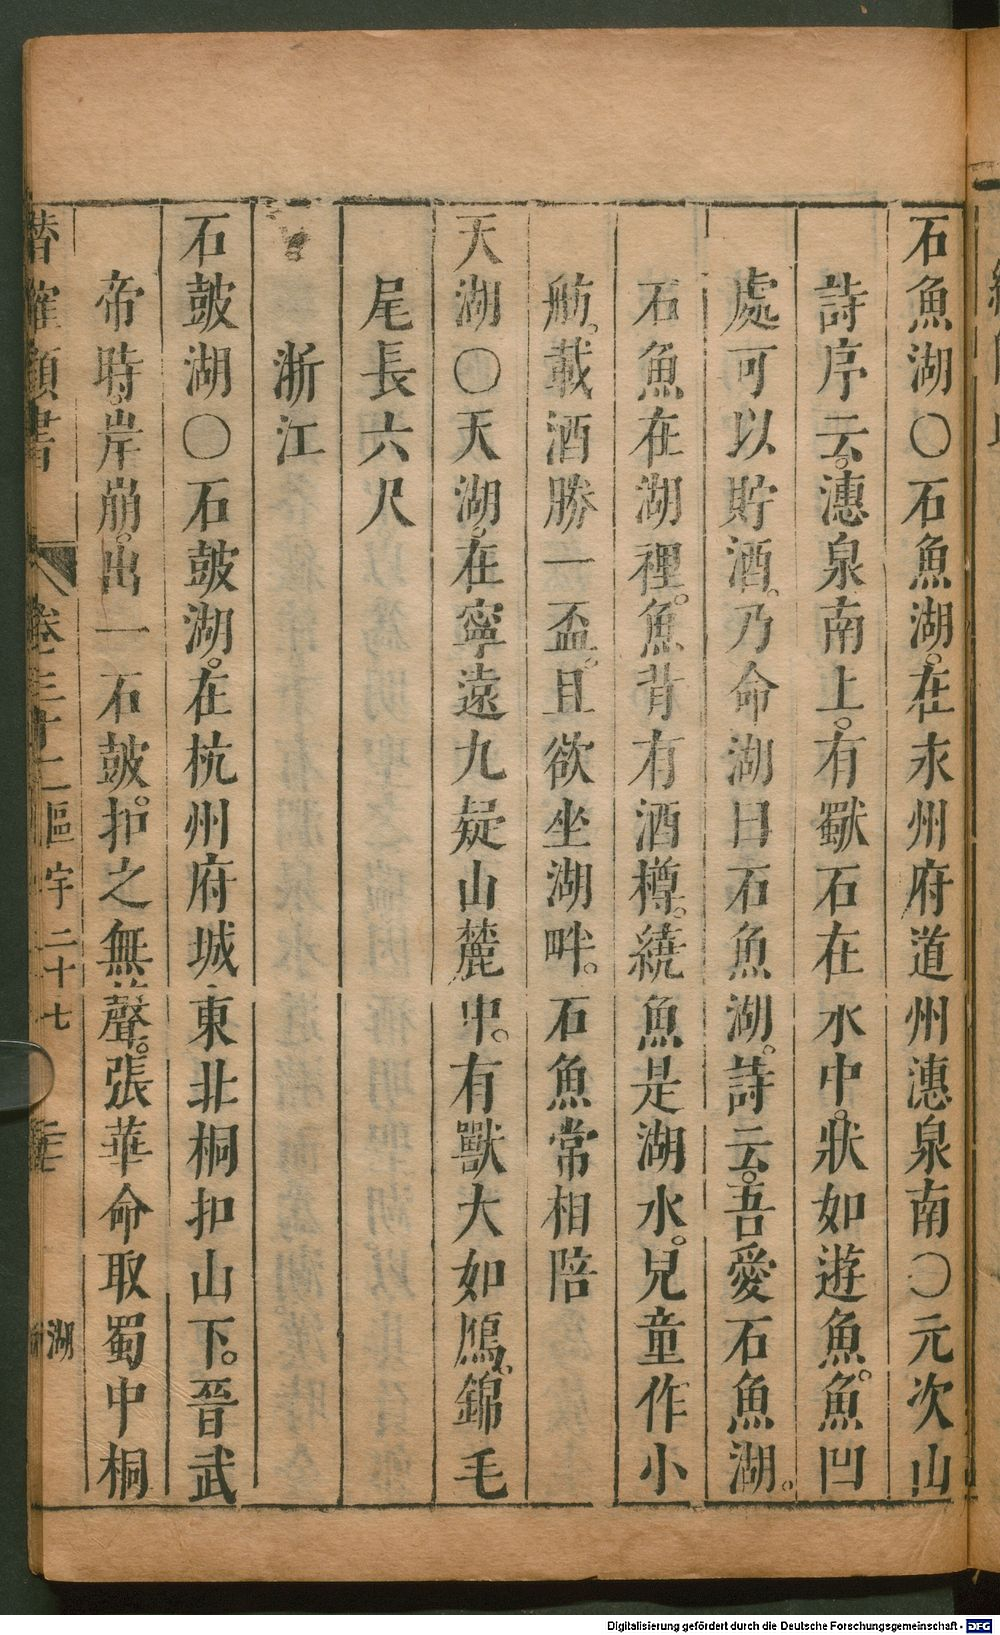 石魚湖〇石魚湖。在永州府道州潓泉南〇元次山
詩序云。潓泉南上。有獸石在水中。狀如遊魚。魚凹
處可以貯酒。乃命湖曰石魚湖。詩云。吾愛石魚湖。
石魚在湖裡。魚背有酒樽。繞魚是湖水。兒童作小
舫。載酒勝一盃。且欲坐湖畔。石魚常相陪
天湖〇天湖。在寧遠九疑山麓中。有獸大如鴈。錦毛
尾長六尺
浙江
石皷湖〇石皷湖。在杭州府城東北桐扣山下。晉武
帝時。岸崩。出一石皷。扣之無聲。張華命取蜀中桐
卷三十二 區宇二十七
湖
Digitalisierung gefördert durch die Deutsche Forschungsgemeinschaft - DFG